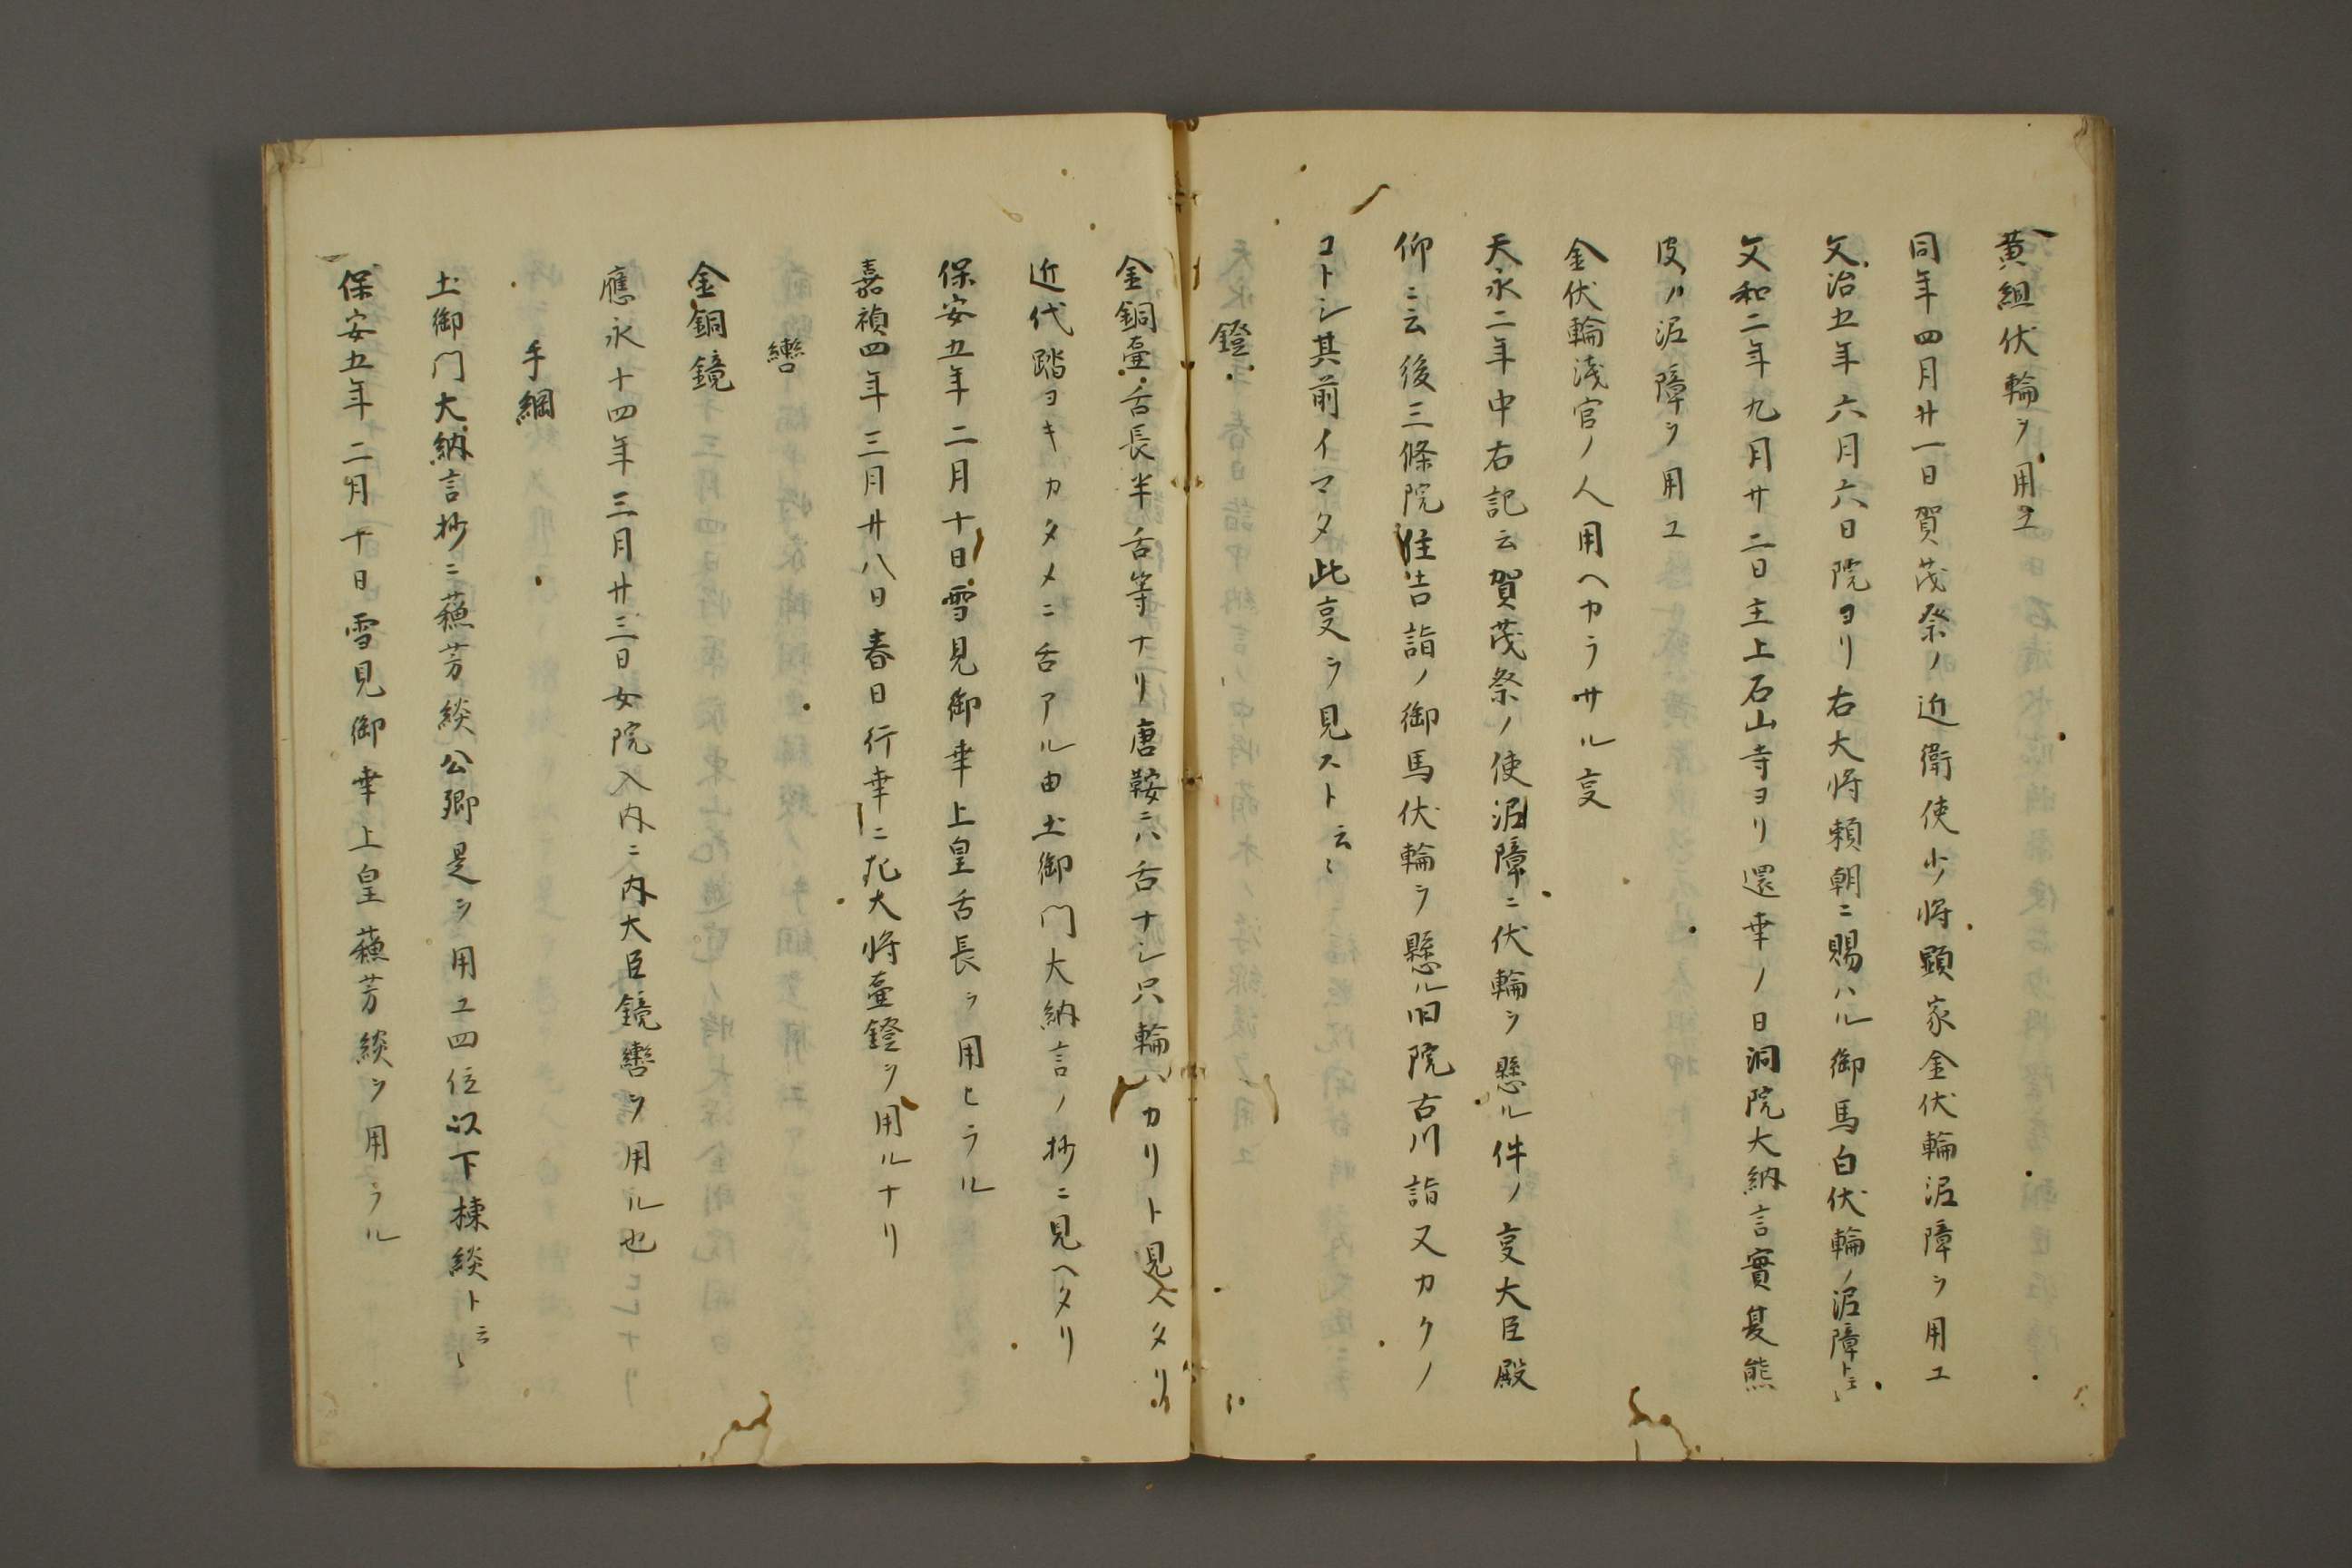 黄組伏輪ヲ用ユ
同年四月廿一日賀茂祭ノ近衛使少将顕家金伏輪泥障ヲ用ユ
文治五年六月六日院ヨリ右大将頼朝ニ賜ハル御馬白伏輪ノ泥障ト云々
文和二年九月廿二日主上石山寺ヨリ還幸ノ日洞院大納言實夏熊
皮ノ泥障ヲ用ユ
金伏輪浅官ノ人用ヘカラサル叓
天永二年中右記云賀茂祭ノ使泥障ニ伏輪ヲ懸ル件ノ叓大臣殿
仰ニ云後三條院住吉詣ノ御馬伏輪ヲ懸ル旧院古川詣又カクノ
コトシ其前イマタ此叓ヲ見スト云々
鐙
金銅壷舌長半舌等ナリ唐鞍ニハ舌ナシ只輪ハカリト見ヘタリ
近代踏ヨキカタメニ舌アル由土御門大納言ノ抄ニ見ヘタリ
保安五年二月十日雪見御幸上皇舌長ヲ用ヒラル
嘉禎四年三月廿八日春日行幸ニ花大将壷鐙ヲ用ルナリ
轡
金銅鏡
應永十四年三月廿三日女院入内ニ内大臣鏡轡ヲ用ル也
手綱
土御門大納言抄ニ蘓芳緂公卿是ヲ用ユ四位以下楝緂ト云々
保安五年二月十日雪見御幸上皇蘓芳緂ヲ用ラル